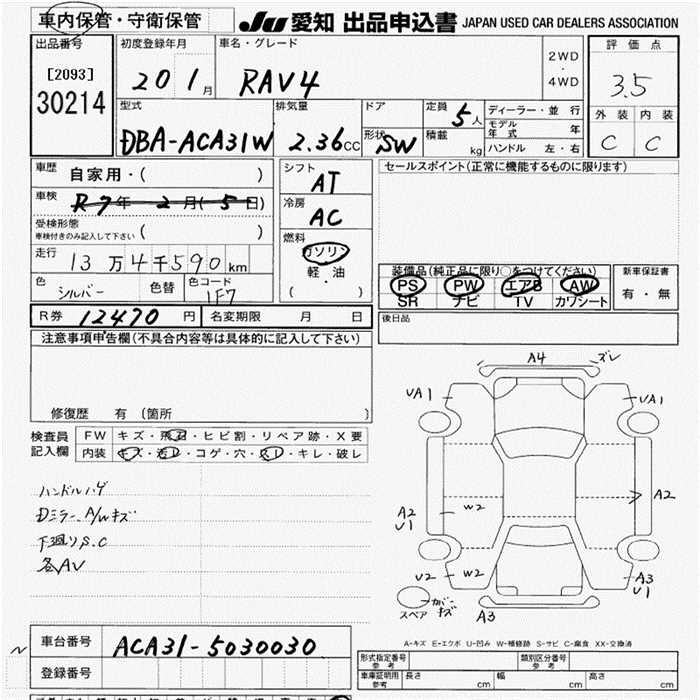 車内保管・守衛保管
JU 愛知 出品申込書 JAPAN USED CAR DEALERS ASSOCIATION
出品番号
[2093]
30214
初度登録年月
20 1月
車名・グレード
RAV4
2WD
・
4WD
評価点
3.5
外装 内装
C C
型式
DBA-ACA31W
排気量
2.36cc
ドア
形状
SW
定員
5人
積載
kg
ディーラー・並行
モデル年式 年
ハンドル 左・右
車歴
自家用・( )
車検
R7年2月(5日)
受検形態
車検付きのみ記入して下さい ( )
走行
13万4千590km
色
シルバー
色替
色コード
1F7
シフト
AT
冷房
AC
燃料
ガソリン
軽・油
( )
セールスポイント(正常に機能するものに限ります)
装備品(純正品に限り○をつけてください)
PS PW エアB AW
SR ナビ TV カワシート
新車保証書
有・無
後日品
R券 12470円
名変期限 月 日
注意事項申告欄(不具合内容等は具体的に記入して下さい)
修復歴 有 (箇所 )
検査員
記入欄
FW キズ・飛石・ヒビ割・リペア跡・X要
内装 キズ・汚レ・コゲ・穴・スレ・キレ・破レ
ハンドルハゲ
Dミラー、A/Wキズ
下廻りS.C
各AV
A4
ズレ
UA1
UA1
A2
U1
W2
A2
U2
W2
A3
U1
スペア
カバーキズ
A3
A-キズ E-エクボ U-凹み W-補修跡 S-サビ C-腐食 XX-交換済
車台番号
ACA31-5030030
登録番号
形式指定番号
参考
類別区分番号
参考
車庫証明用
参考
長さ cm
幅 cm
高さ cm